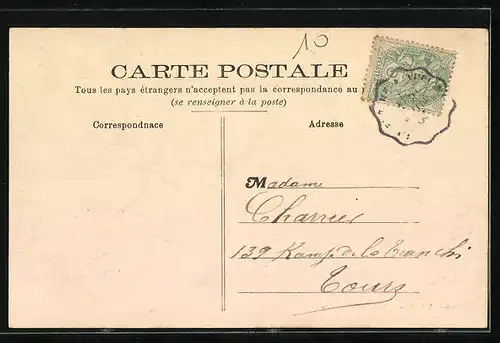 10
CARTE POSTALE
Tous les pays étrangers n'acceptent pas la correspondance au
(se renseigner à la poste)
Correspondnace
Adresse
Madame
Charrier
139 de la Tranchée
Tours